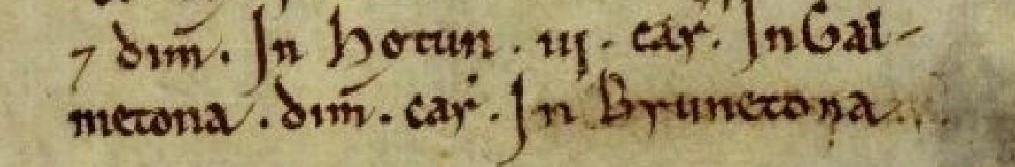 ⁊ dim̃. In Hotun. iij. car̃. In Gal-
metona. dim̃. car̃. In Brunetona.